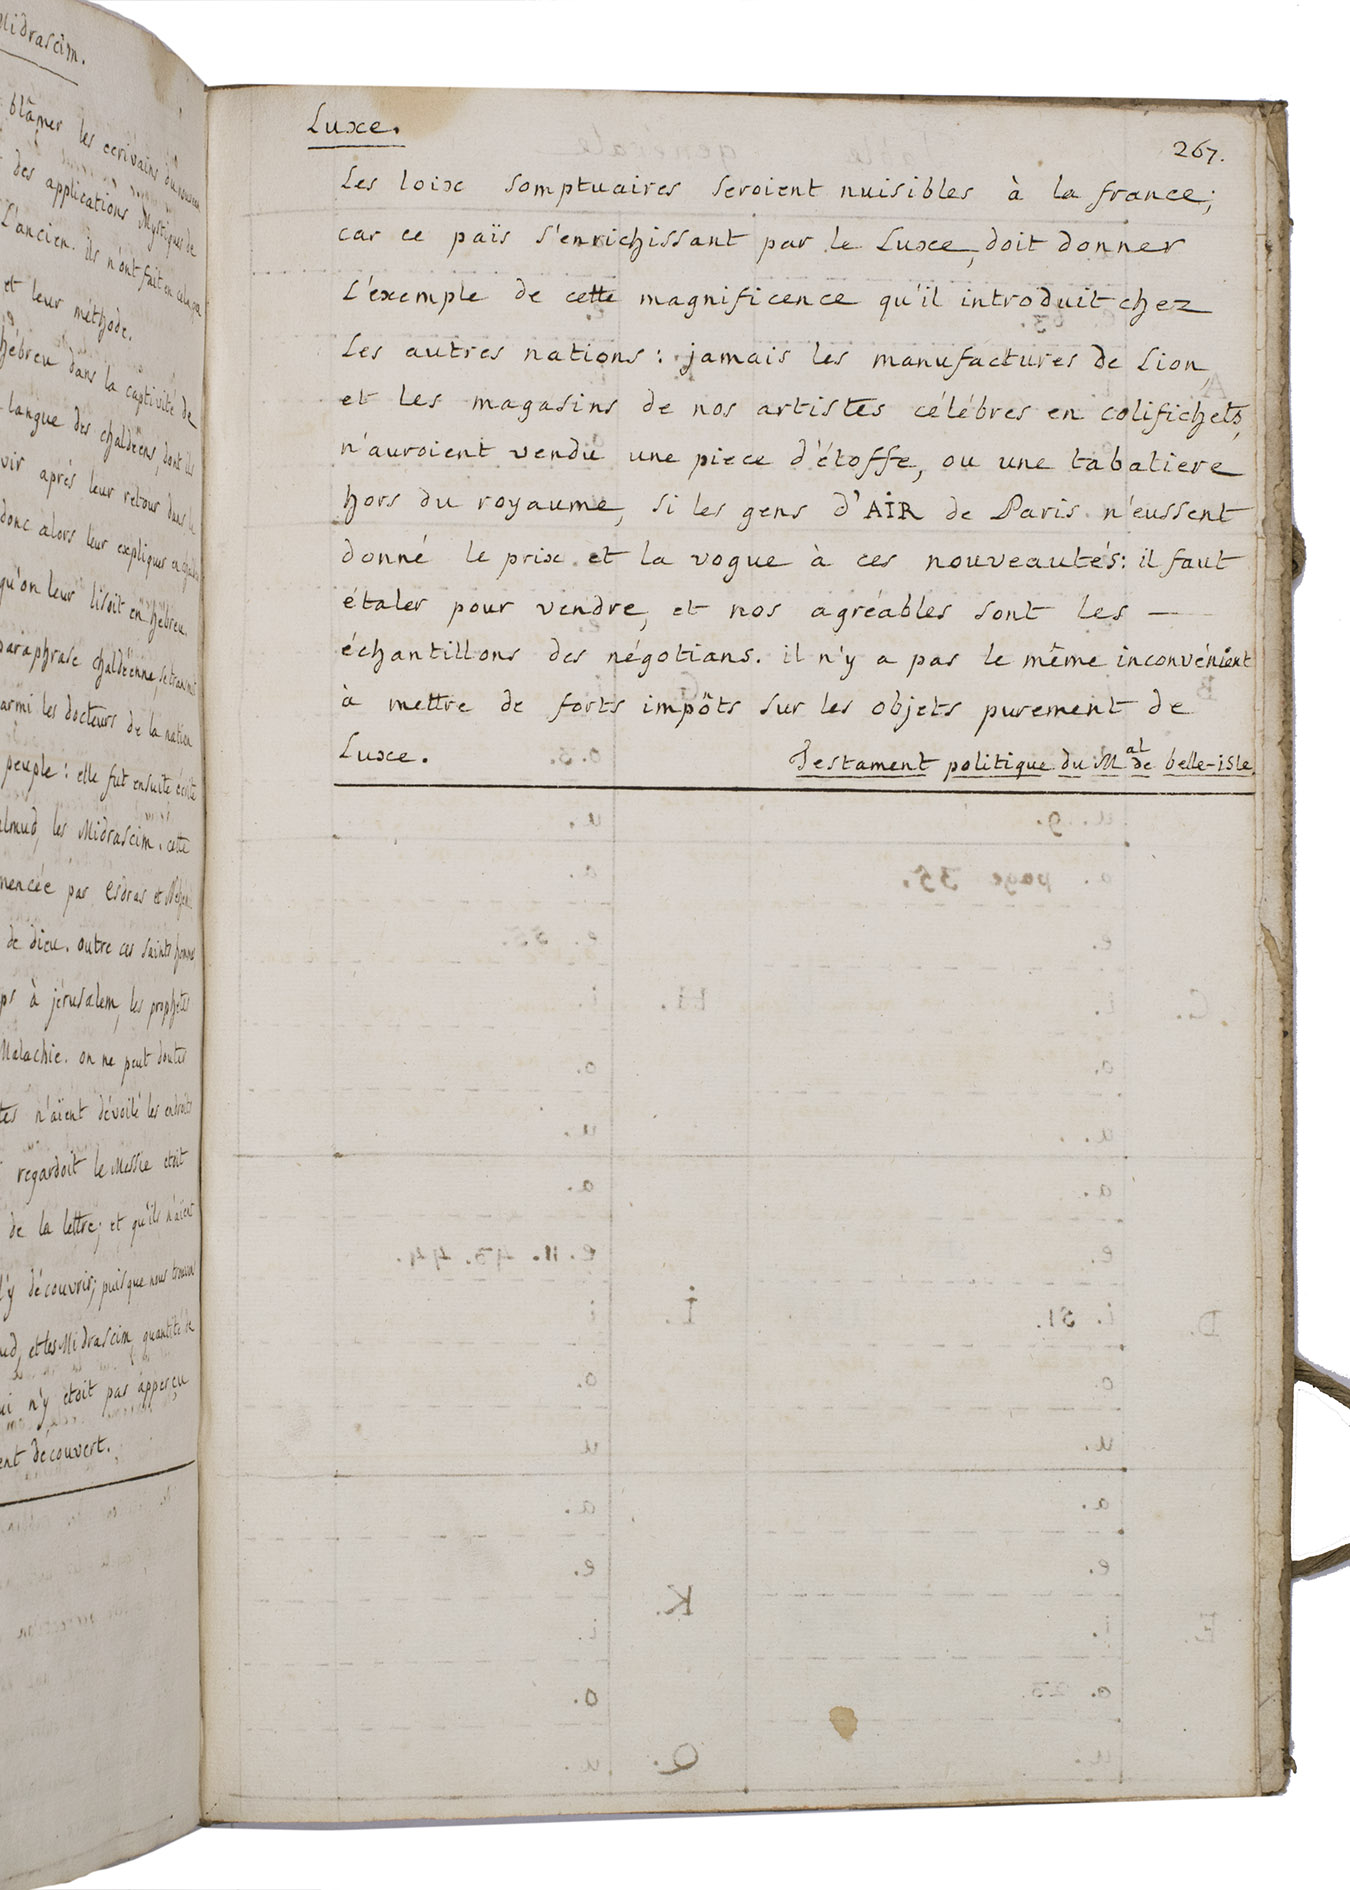 Midrascim.
blâmer les ecrivains du nouveau
des applications Mystiques de
L'ancien. ils n'ont fait en cela
et leur méthode.
hébreu dans la captivité de
langue des chaldéens, dont ils
vir après leur retour dans
donc alors leur expliquer en
qu'on leur lisoit en hébreu.
paraphrase chaldéenne, se transmit
armi les docteurs de la nation
peuple : elle fut ensuite écrite
almud, les Midrascim. cette
mencée par Esdras et
de dieu. outre ces saints hommes
ps à jérusalem, les prophètes
Malachie. on ne peut douter
tes n'aïent dévoilé les endroits
regardoit le Messie étoit
de la lettre; et qu'ils n'aïent
l'y découvrir; puisque nous trouvons
ud, et les Midrascim quantité de
ui n'y étoit pas apperçu
ent découvert.
Luxe.
267.
Les loix somptuaires seroient nuisibles à la france;
car ce païs s'enrichissant par le Luxe, doit donner
L'exemple de cette magnificence qu'il introduit chez
Les autres nations : jamais les manufactures de Lion,
et les magasins de nos artistes célébres en colifichets,
n'auroient vendu une piece d'étoffe, ou une tabatiere
hors du royaume, si les gens d'AIR de Paris n'eussent
donné le prix et la vogue à ces nouveautés: il faut
étaler pour vendre, et nos agréables sont les —
échantillons des négotians. il n'y a pas le même inconvénient
à mettre de forts impôts sur les objets purement de
Luxe.
Testament politique du Mal de belle-isle.